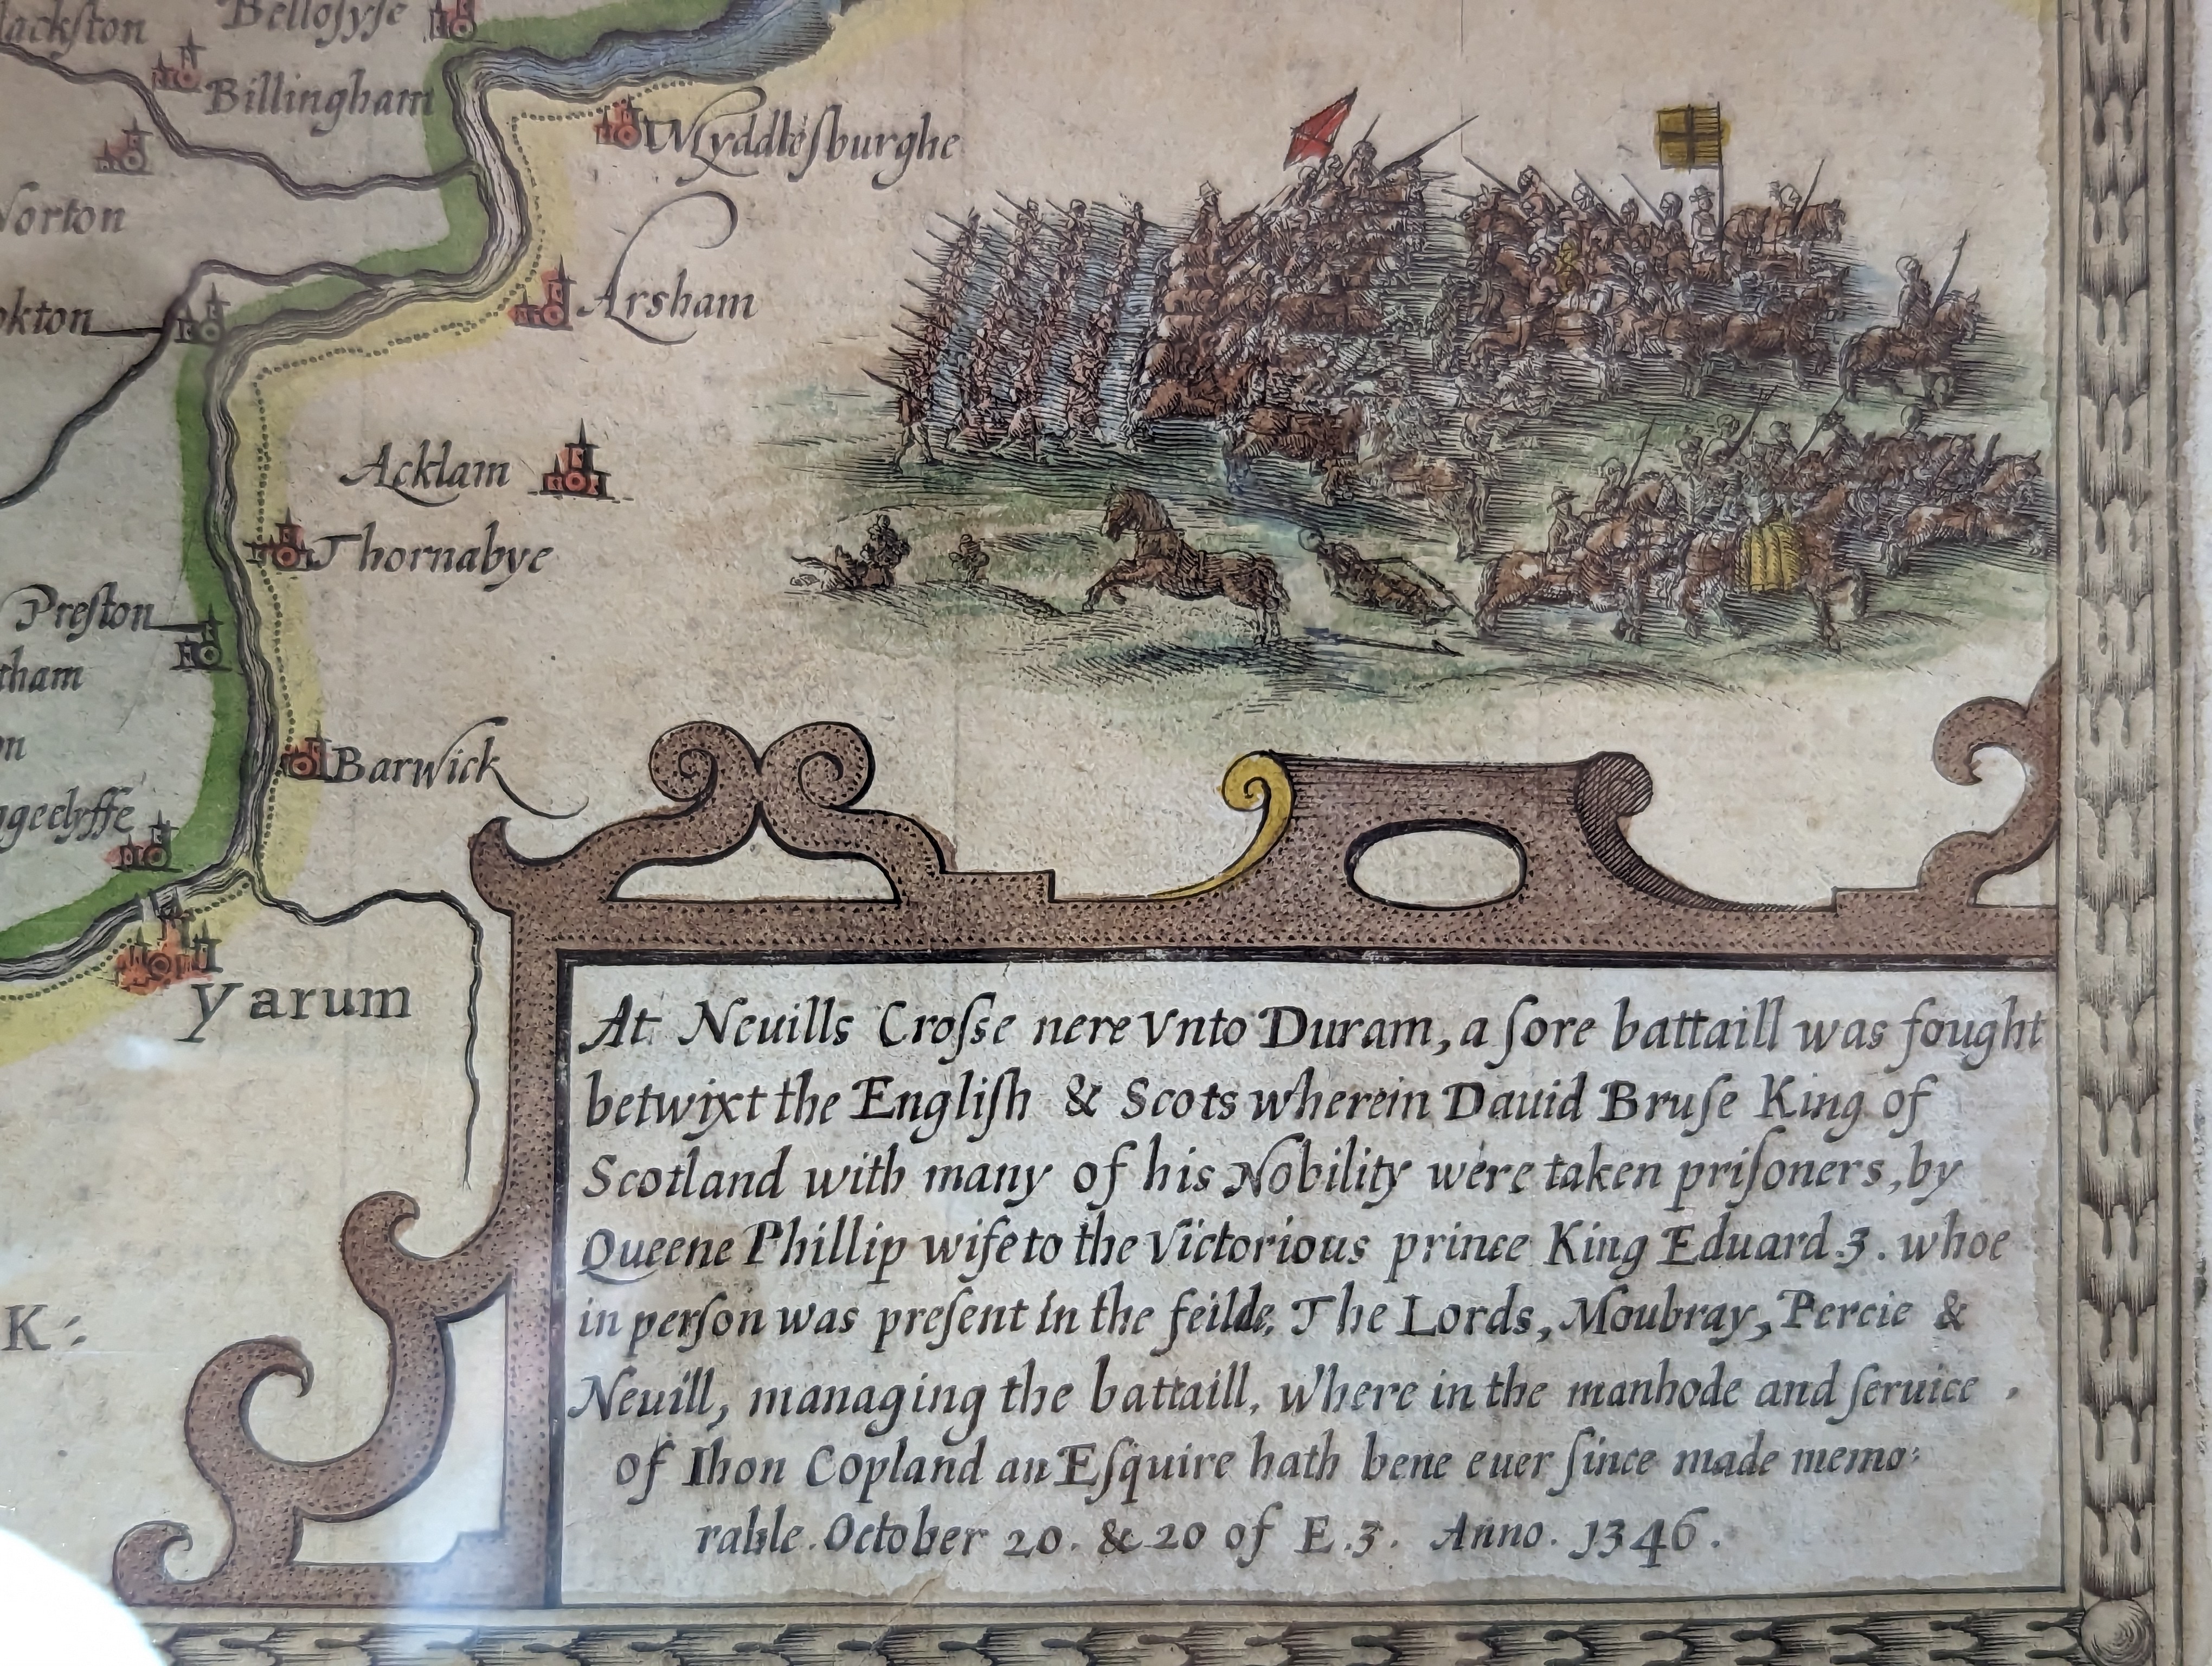 Belloſyſe
Billingham
Myddleſburghe
Norton
Arsham
Acklam
Thornabye
Preſton
Barwick
Yarum
K:
At Neuills Croſse nere Vnto Duram, a ſore battaill was fought
betwixt the Engliſh & Scots wherein Dauid Bruſe King of
Scotland with many of his Nobility were taken priſoners, by
Queene Phillip wife to the Victorious prince King Eduard.3. whoe
in perſon was preſent in the feilde. The Lords, Moubray, Percie &
Neuill, managing the battaill, Where in the manhode and ſeruice .
of Ihon Copland an Eſquire hath bene euer ſince made memo:
rable. October 20. & 20 of E.3. Anno. 1346.